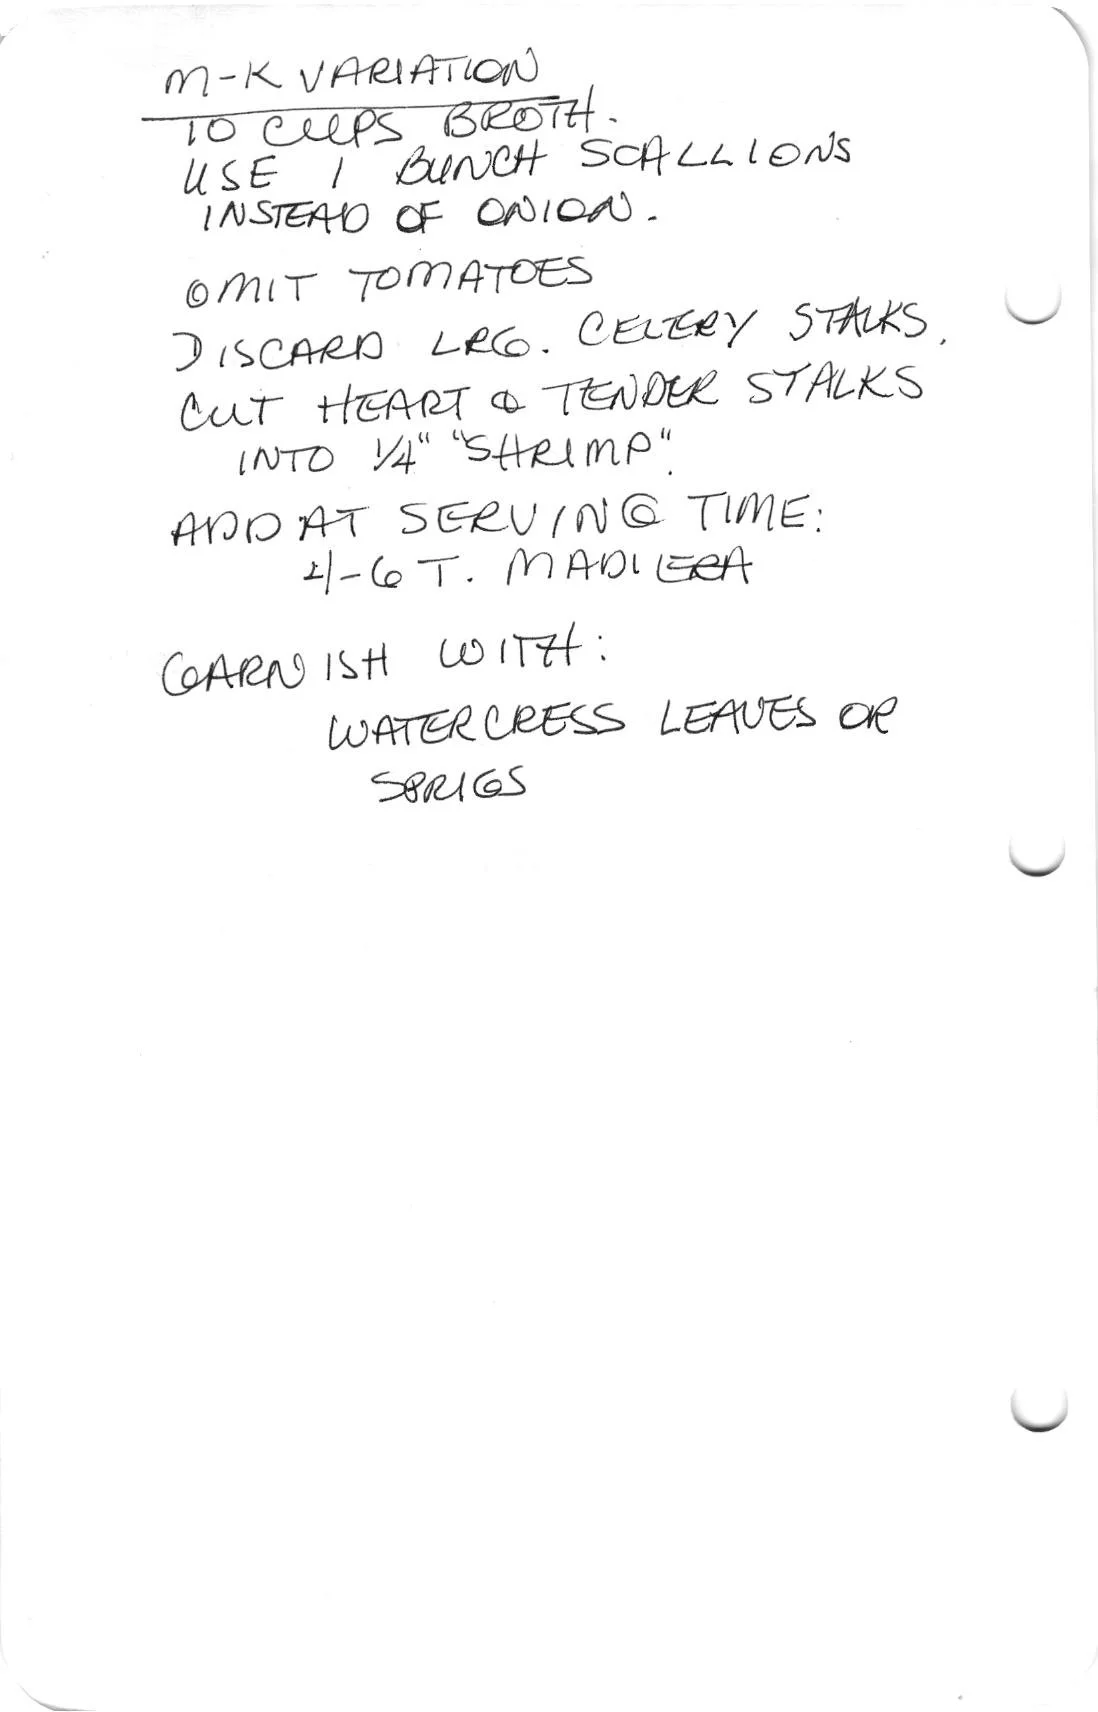 M-K VARIATION
10 CUPS BROTH.
USE 1 BUNCH SCALLIONS
INSTEAD OF ONION.
OMIT TOMATOES
DISCARD LRG. CELERY STALKS.
CUT HEART & TENDER STALKS
INTO 1/4" "SHRIMP".
ADD AT SERVING TIME:
4-6 T. MADIERA
GARNISH WITH:
WATERCRESS LEAVES OR
SPRIGS